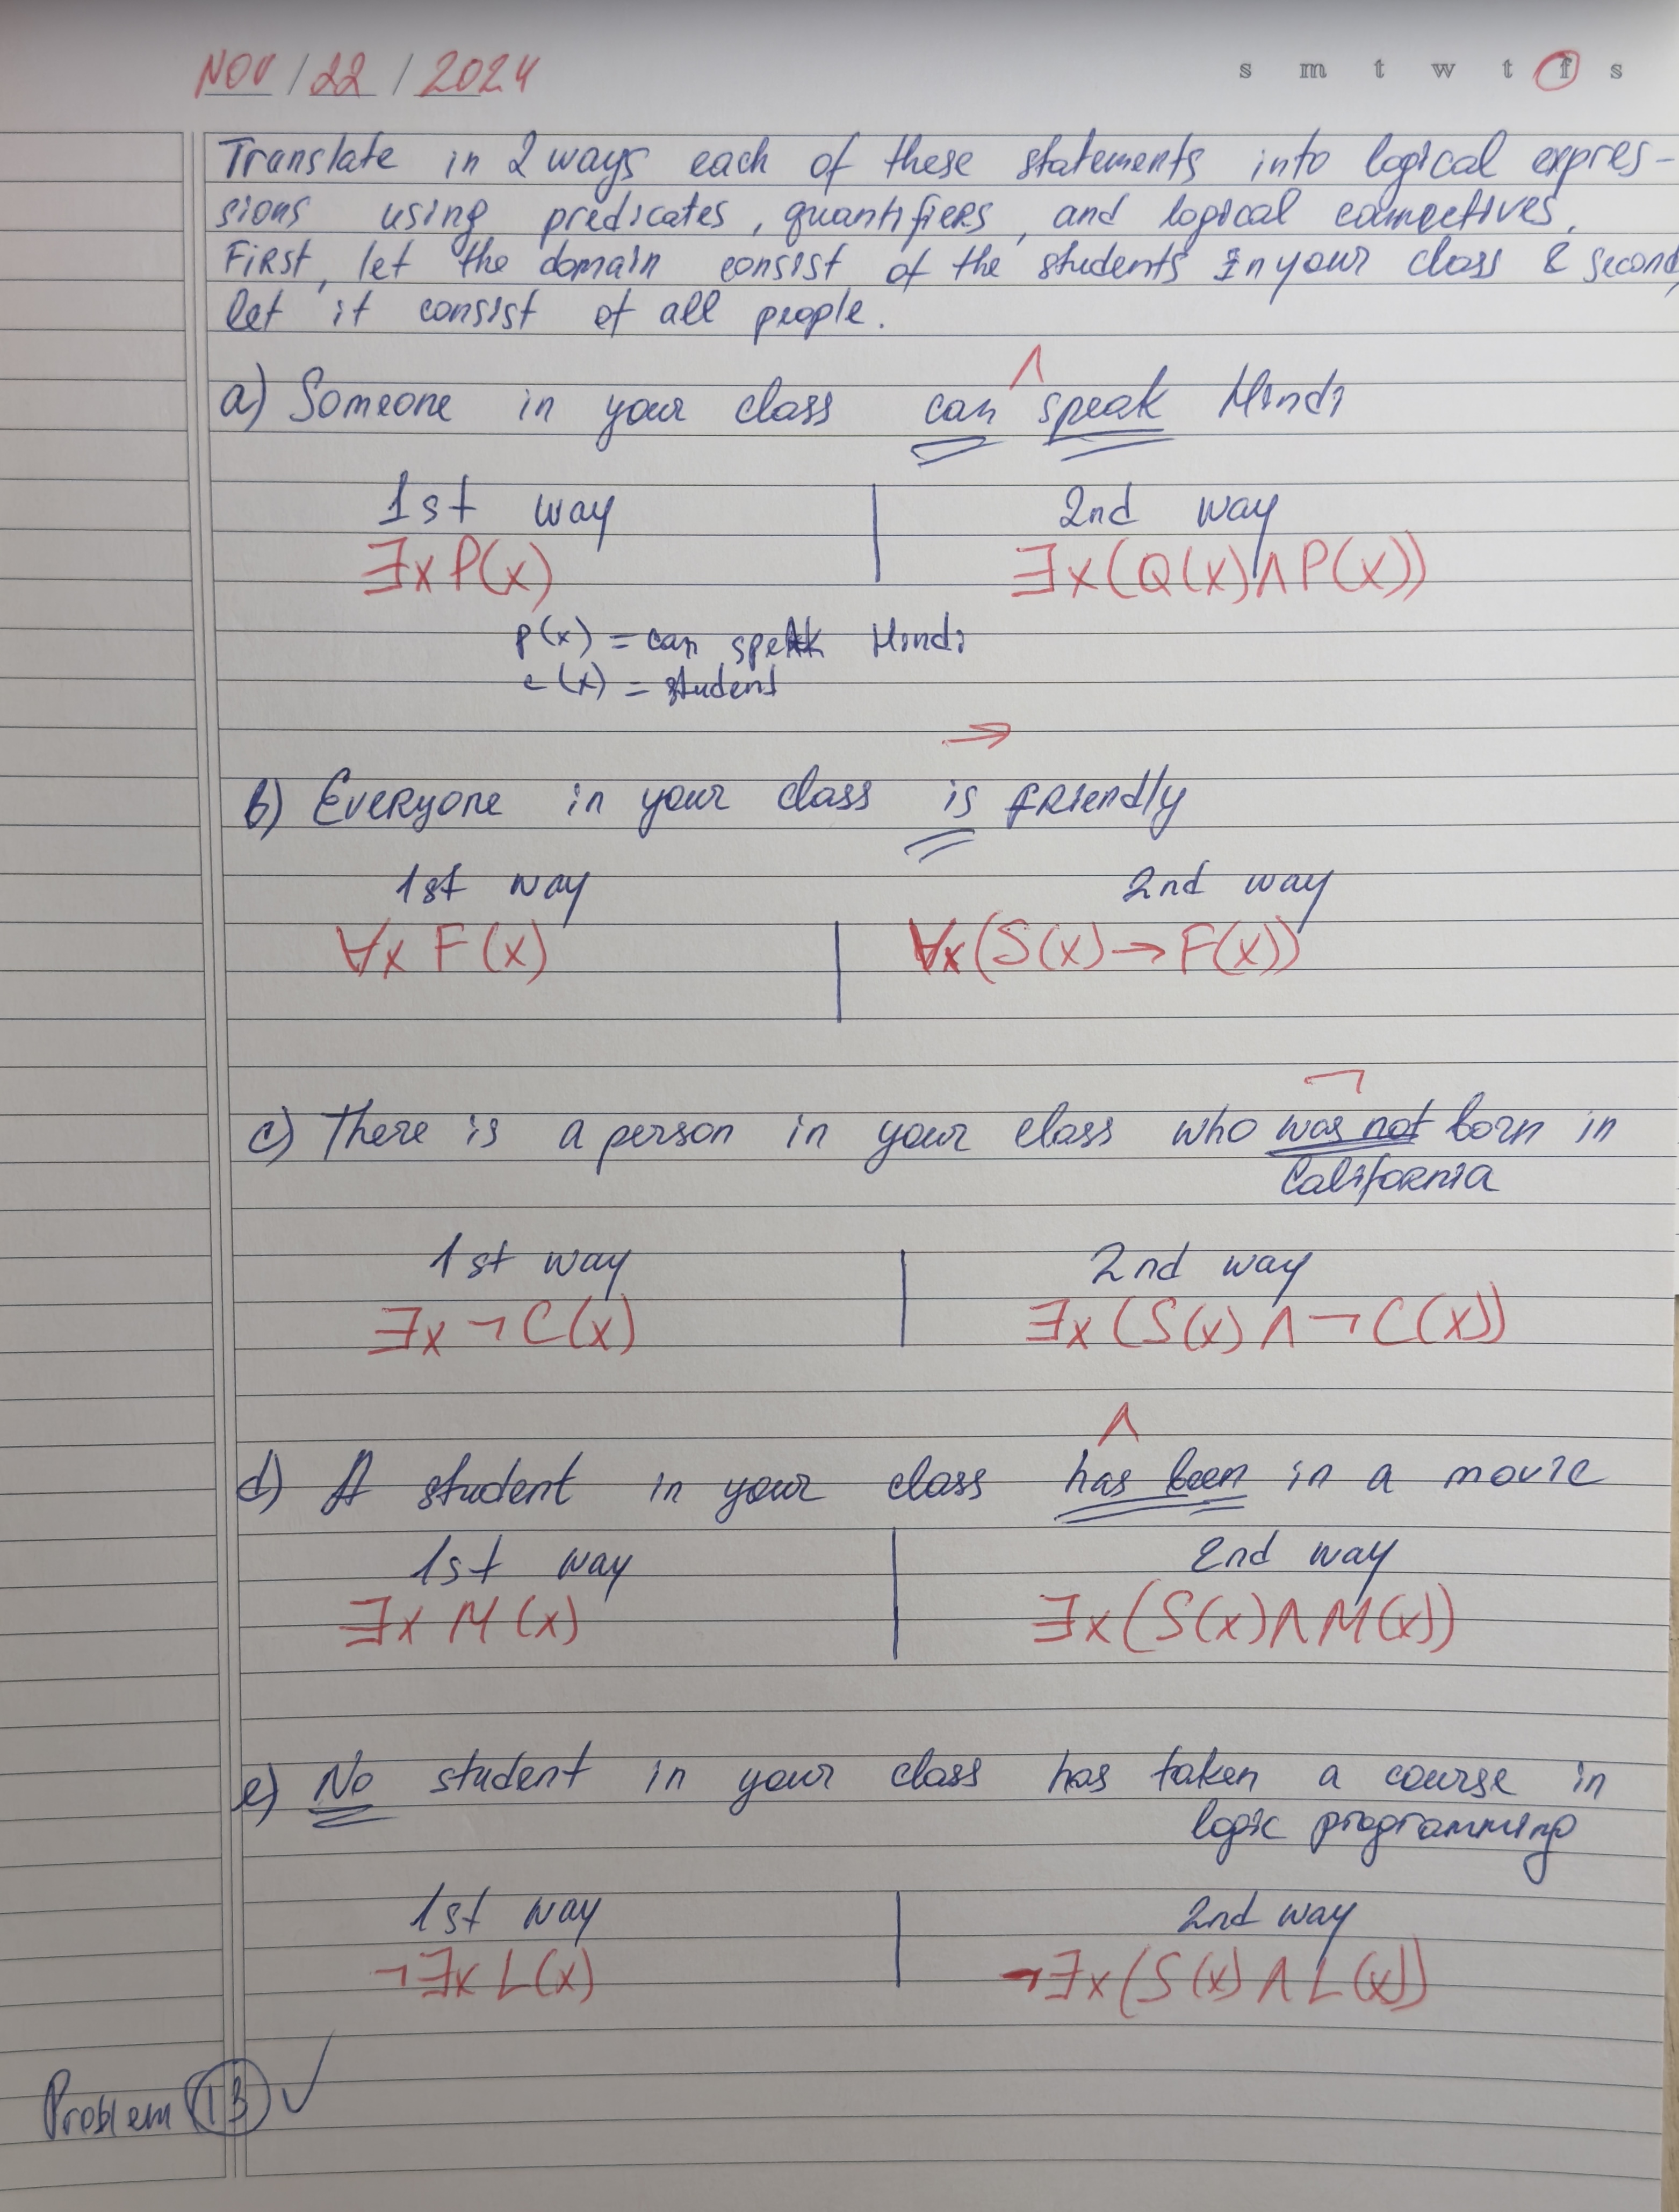 NOV / 22 / 2024
s m t w t f s
Translate in 2 ways each of these statements into logical expres-
sions using predicates, quantifiers, and logical connectives.
First, let the domain consist of the students in your class & second,
let it consist of all people.
∧
a) Someone in your class can speak Hindi
1st way | 2nd way
∃x P(x) | ∃x(Q(x)∧P(x))
p(x) = can speak Hindi
c(x) = student
→
b) Everyone in your class is friendly
1st way 2nd way
∀x F(x) | ∀x(S(x)→F(x))
¬
c) There is a person in your class who was not born in
California
1st way | 2nd way
∃x ¬C(x) | ∃x(S(x)∧¬C(x))
∧
d) A student in your class has been in a movie
1st way | 2nd way
∃x M(x) | ∃x(S(x)∧M(x))
e) No student in your class has taken a course in
logic programming
1st way | 2nd way
¬∃x L(x) | ¬∃x(S(x)∧L(x))
Problem 13 ✓